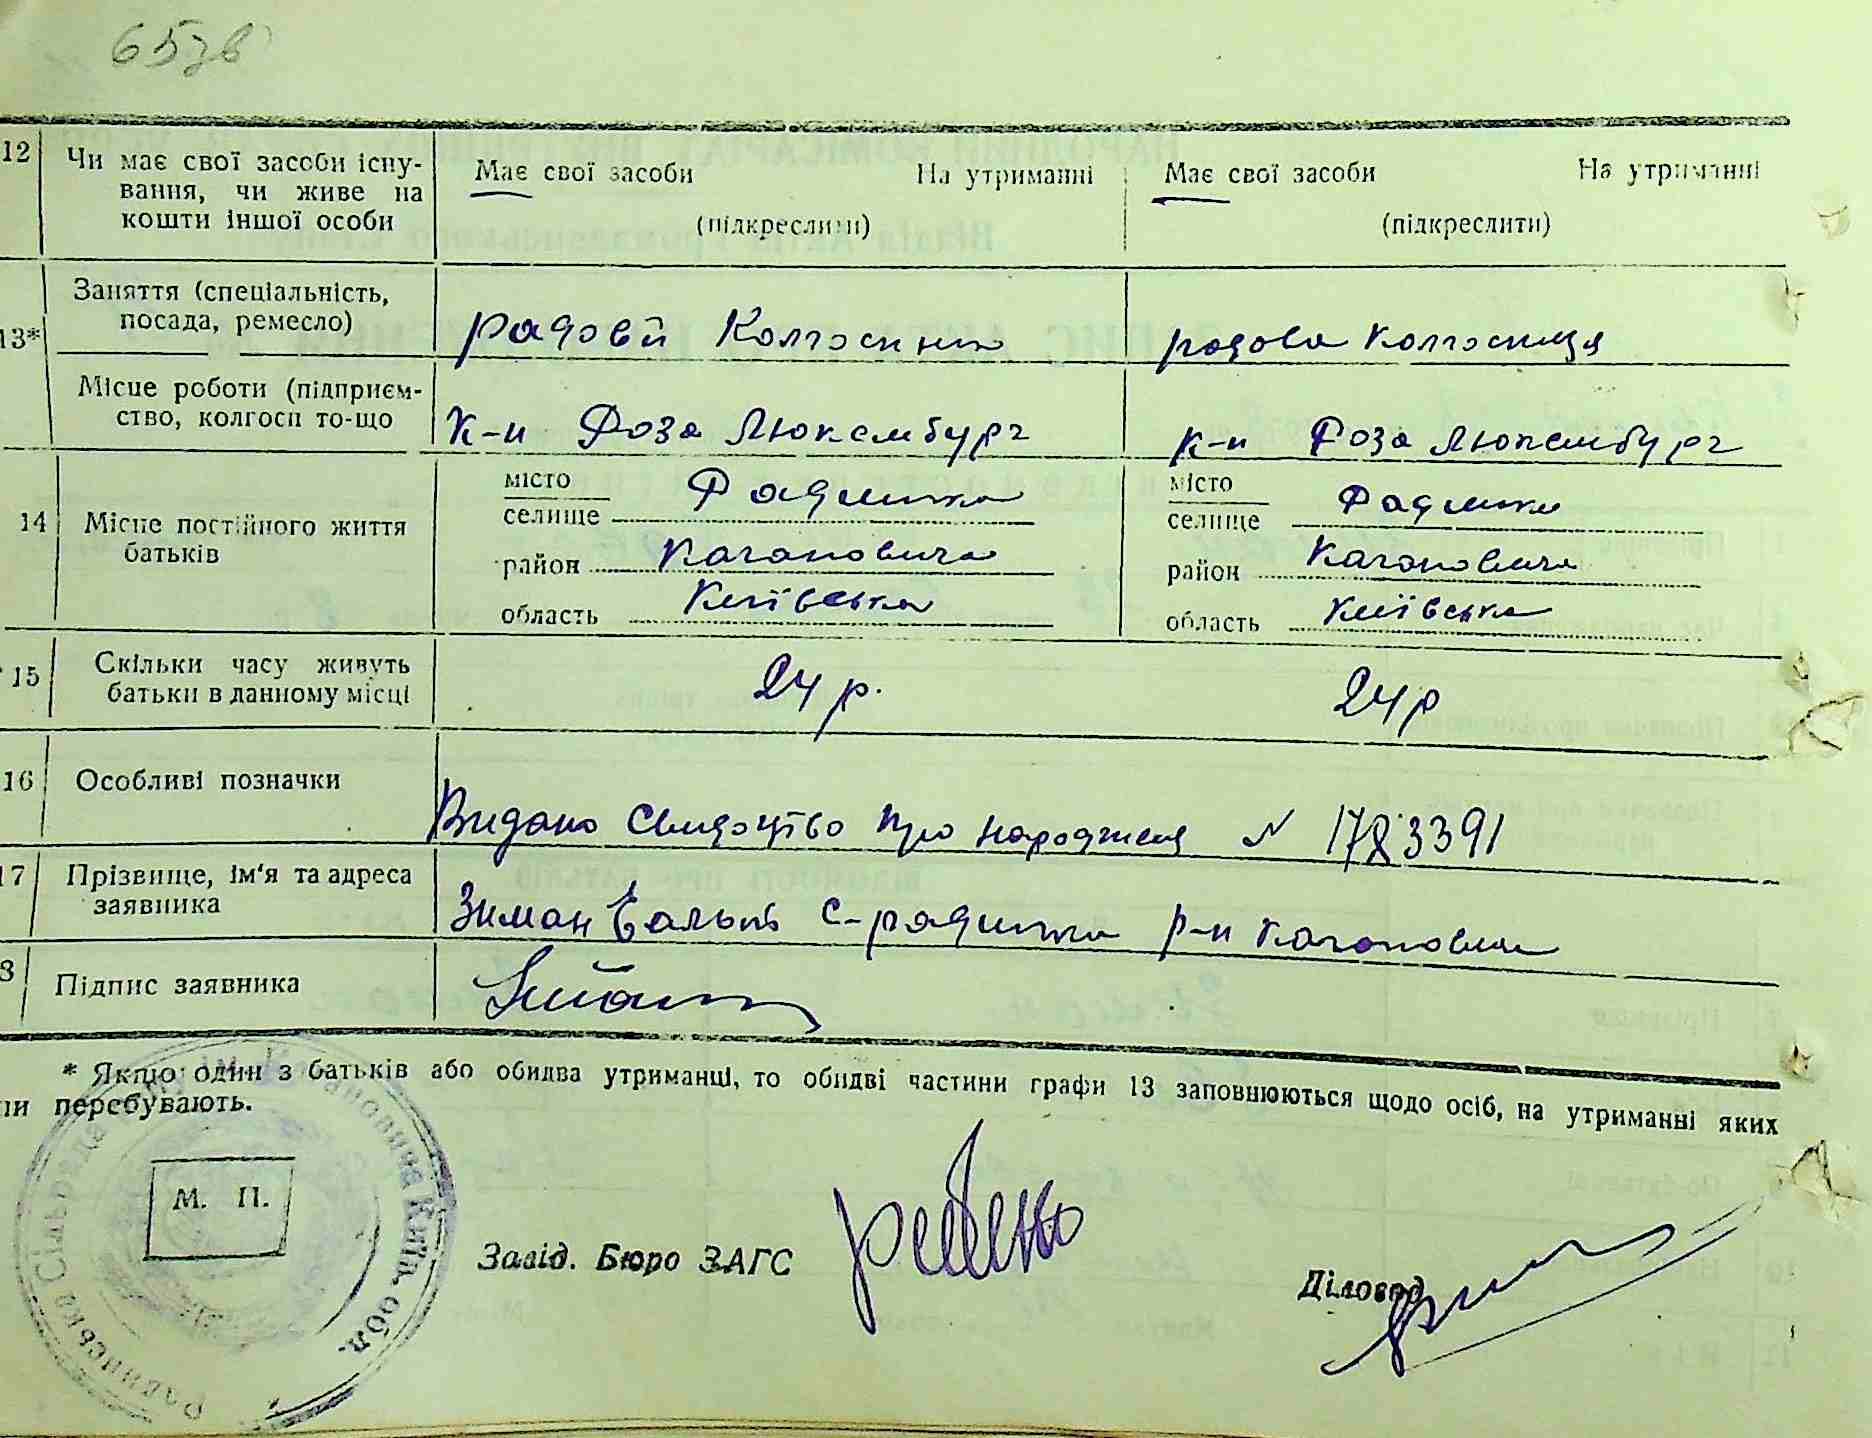 657в
12 Чи має свої засоби існу-
вання, чи живе на
кошти іншої особи
Має свої засоби На утриманні
(підкреслити)
Має свої засоби На утриманні
(підкреслити)
13* Заняття (спеціальність,
посада, ремесло)
радовий Колгосник
родова Колгосниця
Місце роботи (підприєм-
ство, колгосп то-що
к-п Роза Люксембург
к-п Роза Люксембург
14 Місце постійного життя
батьків
місто
селище Радинка
район Кагановича
область Київська
місто
селище Радинка
район Кагановича
область Київська
15 Скільки часу живуть
батьки в данному місці
24 р.
24 р
16 Особливі позначки
Видано Свидоцтво про народження № 1783391
17 Прізвище, ім'я та адреса
заявника
Зиман с-радинка р-н Кагановича
8 Підпис заявника
* Якщо один з батьків або обидва утриманці, то обидві частини графи 13 заповнюються щодо осіб, на утриманні яких
ни перебувають.
М. П.
Завід. Бюро ЗАГС
Діловод
Радинська Сільрада Кагановича Київ. обл.